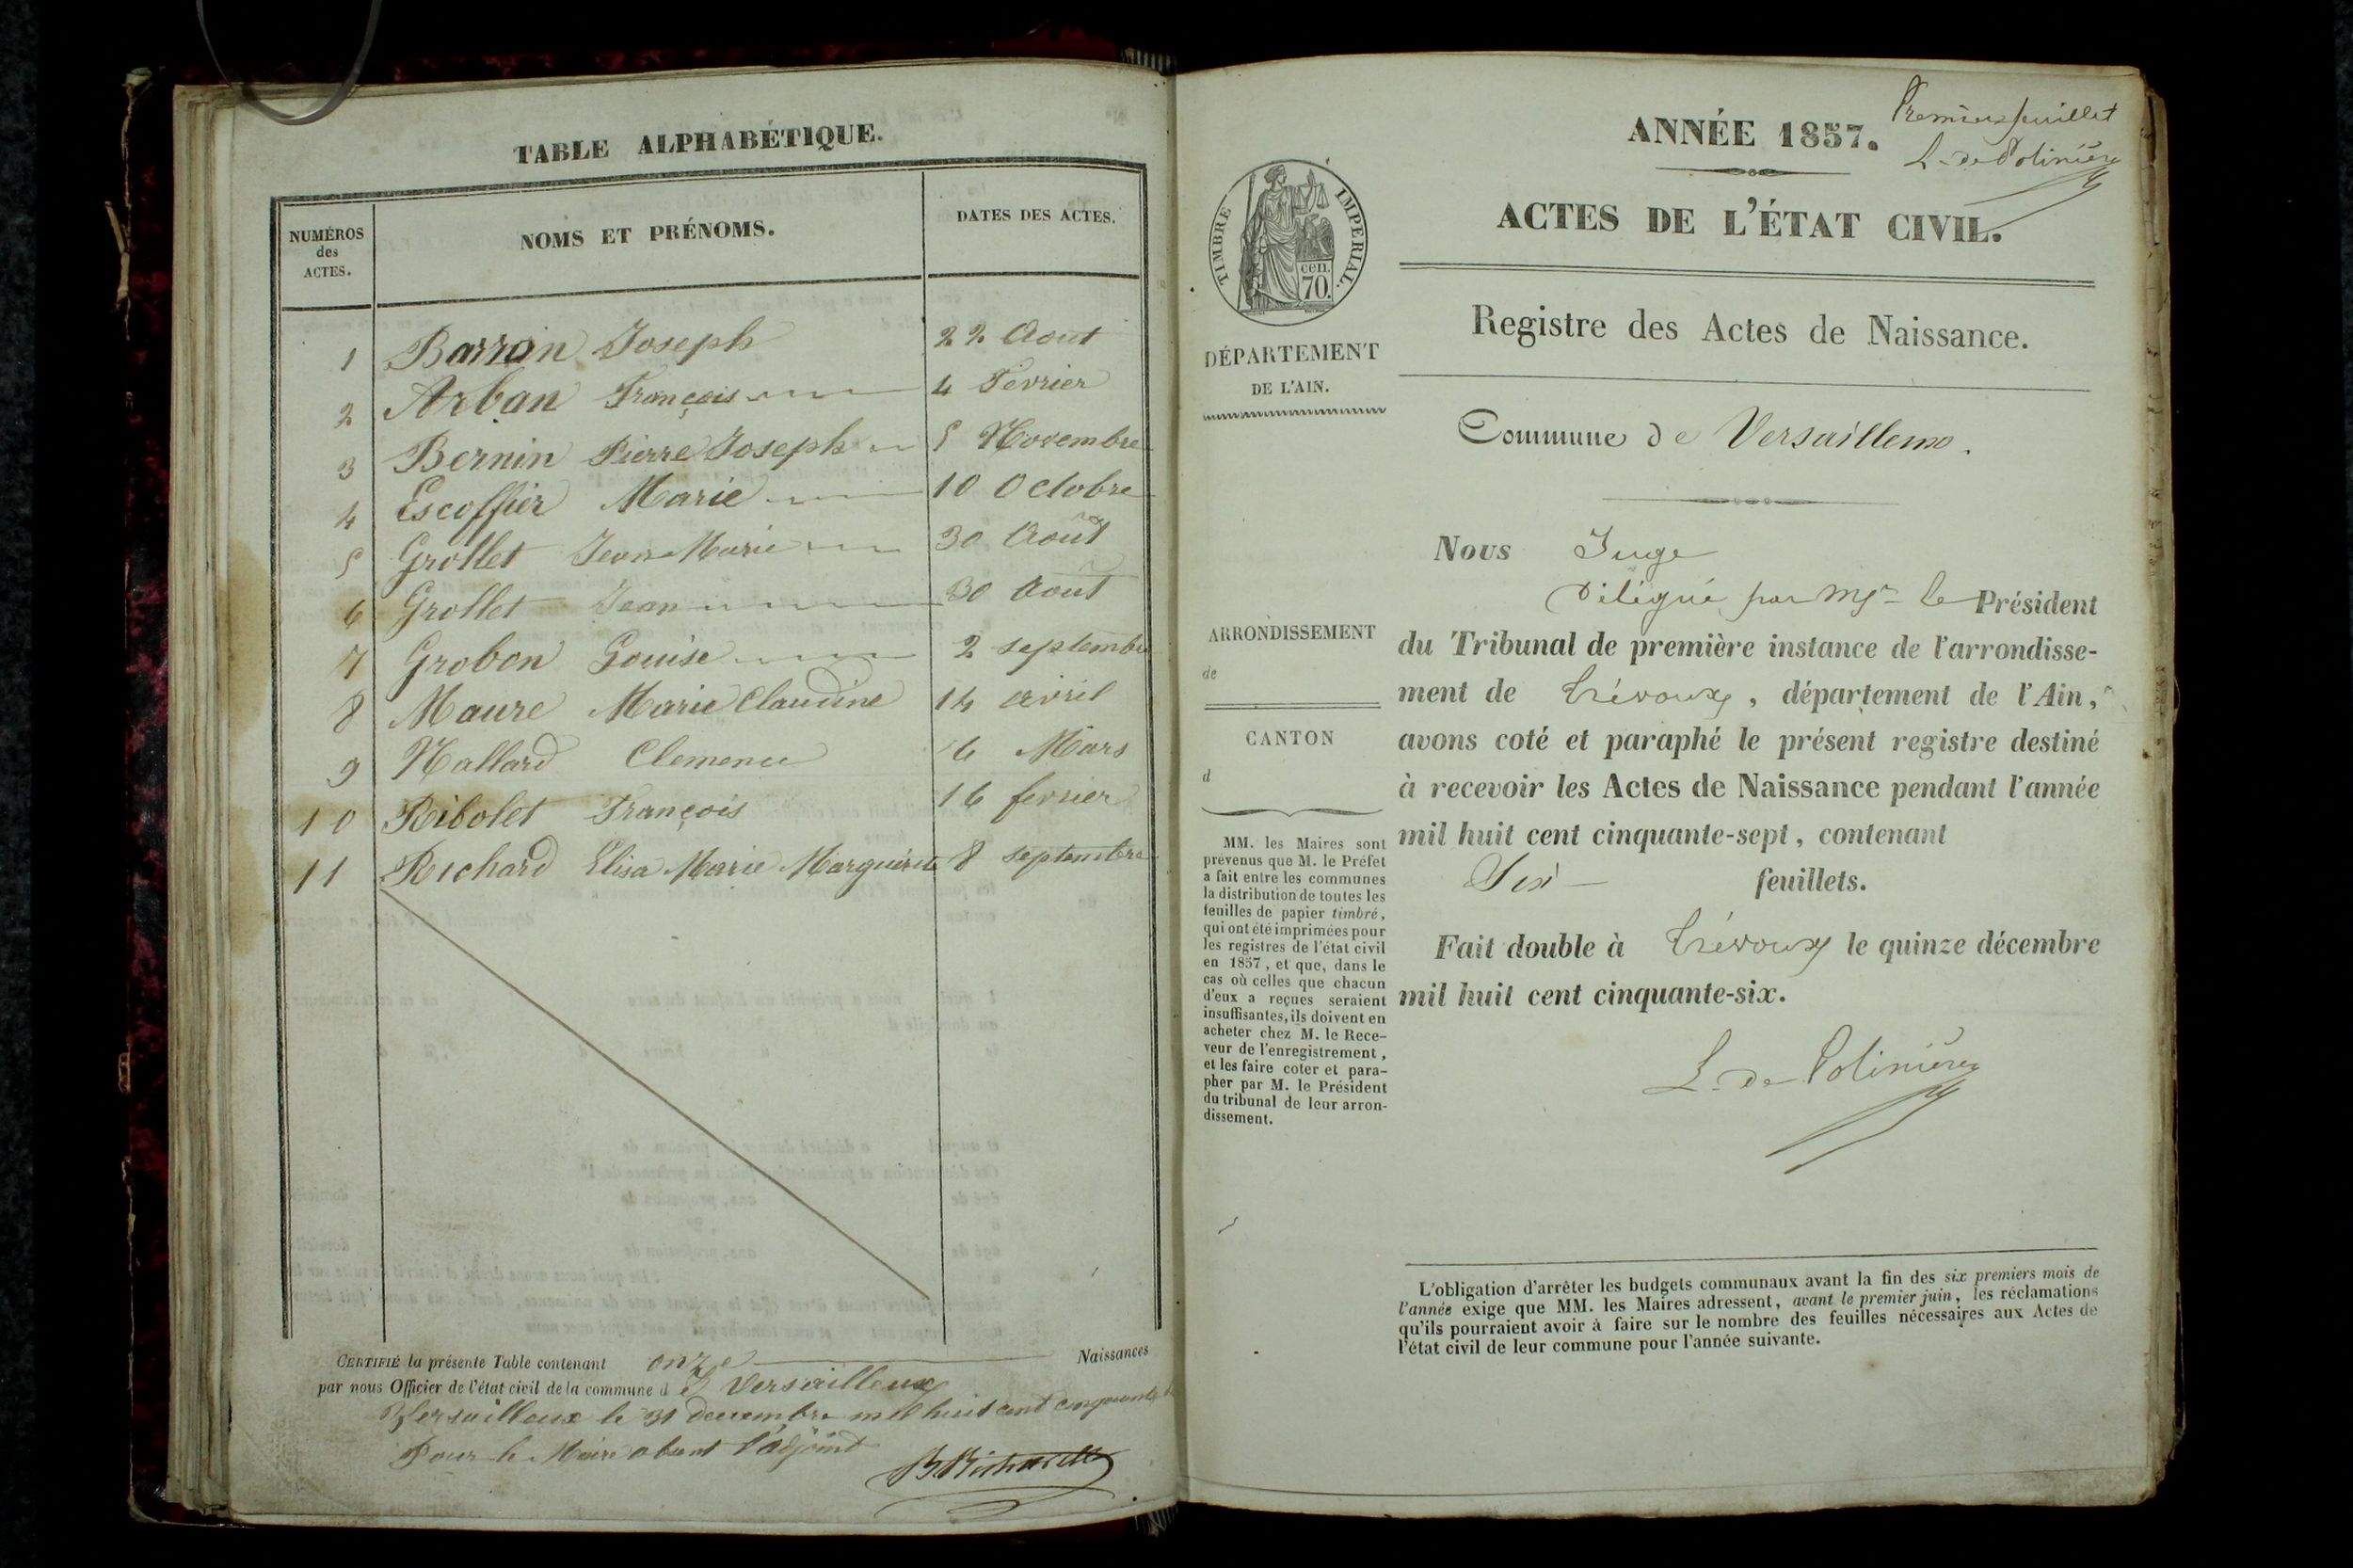 TABLE ALPHABÉTIQUE.
NUMÉROS
des
ACTES.
NOMS ET PRÉNOMS.
DATES DES ACTES.
1 Barron Joseph 22 Aout
2 Arban François 4 Fevrier
3 Bernin Pierre Joseph 5 Novembre
4 Escoffier Marie 10 Octobre
5 Grollet Jean Marie 30 Août
6 Grollet Jean 30 Août
7 Grobon Louise 2 septembre
8 Maure Marie Claudine 14 avril
9 Nallard Clemence 6 Mars
10 Ribolet François 16 fevrier
11 Richard Elisa Marie Marguérite 8 septembre
CERTIFIÉ la présente Table contenant onze Naissances
par nous Officier de l'état civil de la commune d Versailleux
Versailleux le 31 decembre mil huit cent cinquante
Pour le Maire absent l'adjoint
Premier feuillet
L. de Polinière
ANNÉE 1857.
ACTES DE L'ÉTAT CIVIL.
TIMBRE IMPÉRIAL.
cen.
70.
Registre des Actes de Naissance.
DÉPARTEMENT
DE L'AIN.
Commune de Versailleux.
Nous Juge
Délégué par Mr le Président
du Tribunal de première instance de l'arrondisse-
ment de Trévoux, département de l'Ain,
avons coté et paraphé le présent registre destiné
à recevoir les Actes de Naissance pendant l'année
mil huit cent cinquante-sept, contenant
Six feuillets.
Fait double à Trévoux le quinze décembre
mil huit cent cinquante-six.
L. de Polinière
ARRONDISSEMENT
de
CANTON
d
MM. les Maires sont
prévenus que M. le Préfet
a fait entre les communes
la distribution de toutes les
feuilles de papier timbré,
qui ont été imprimées pour
les registres de l'état civil
en 1857, et que, dans le
cas où celles que chacun
d'eux a reçues seraient
insuffisantes, ils doivent en
acheter chez M. le Rece-
veur de l'enregistrement,
et les faire coter et para-
pher par M. le Président
du tribunal de leur arron-
dissement.
L'obligation d'arrêter les budgets communaux avant la fin des six premiers mois de
l'année exige que MM. les Maires adressent, avant le premier juin, les réclamations
qu'ils pourraient avoir à faire sur le nombre des feuilles nécessaires aux Actes de
l'état civil de leur commune pour l'année suivante.